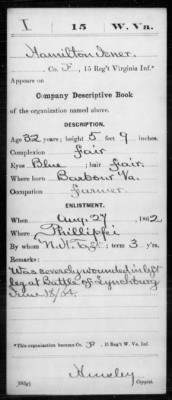 I 15 W. Va.
Hamilton Isner.
Co. F, 15 Reg't Virginia Inf.*
Appears on
Company Descriptive Book
of the organization named above.
DESCRIPTION.
Age 32 years; height 5 feet 9 inches.
Complexion fair
Eyes Blue; hair fair.
Where born Barbour Va.
Occupation Farmer.
ENLISTMENT.
When Aug. 27, 1862
Where Phillippi
By whom N.H. Taft.; term 3 y'rs.
Remarks:
Was severely wounded in left
leg at Battle of Lynchburg
June 18/64.
*This organization became Co. F, 15 Reg't W. Va. Inf.
Hursley
Copyist.